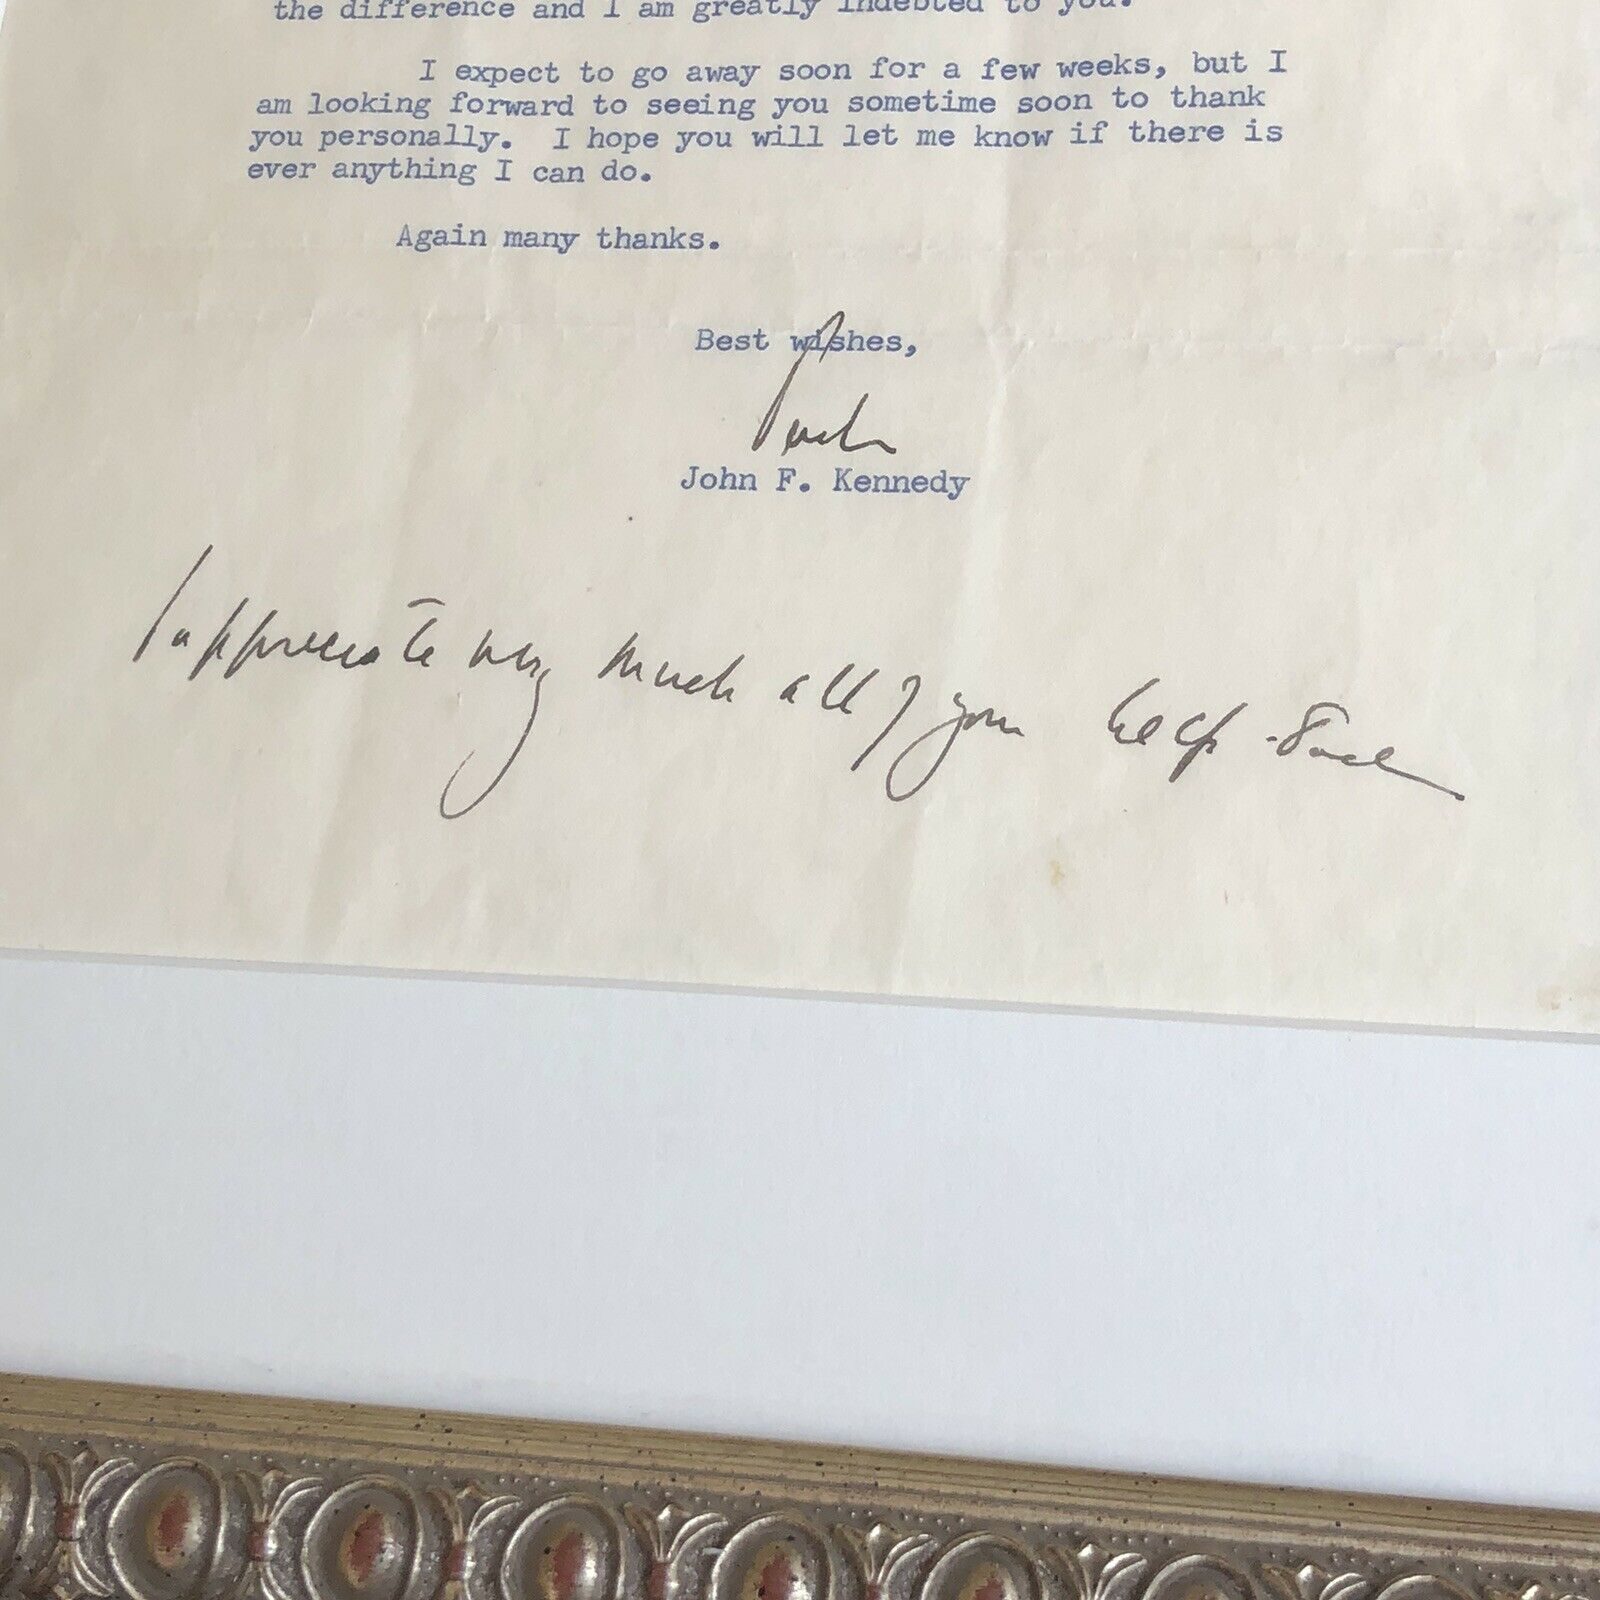 the difference and I am greatly indebted to you.
I expect to go away soon for a few weeks, but I
am looking forward to seeing you sometime soon to thank
you personally. I hope you will let me know if there is
ever anything I can do.
Again many thanks.
Best wishes,
Jack
John F. Kennedy
I appreciate very much all of your help - Jack